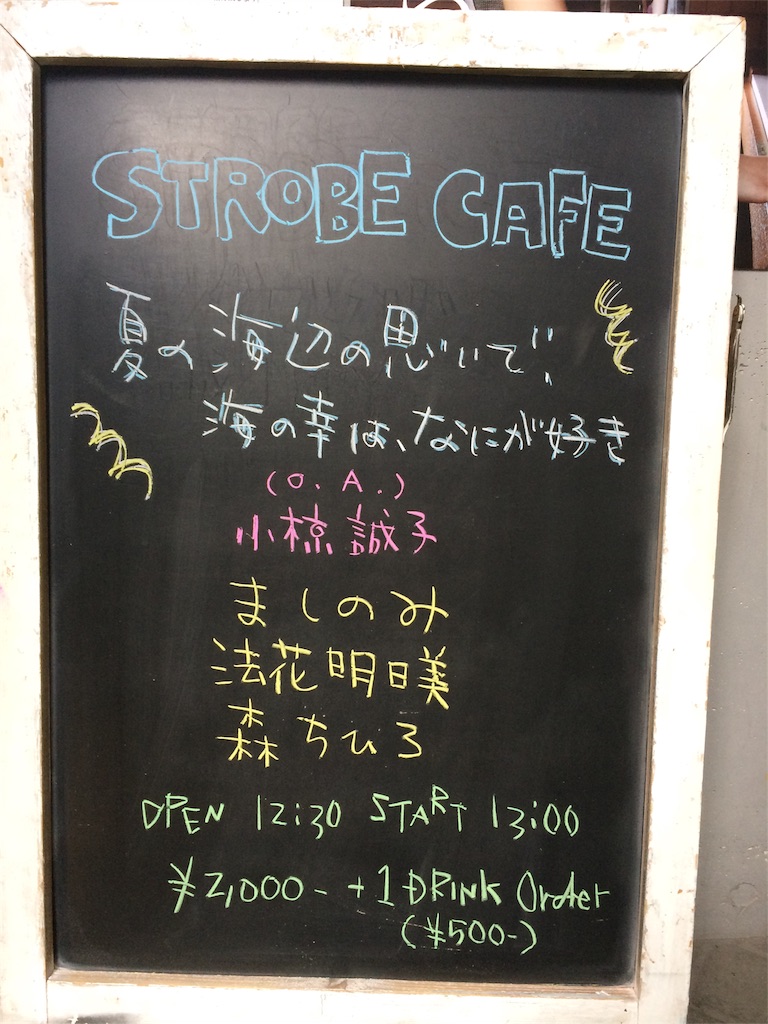 STROBE CAFE
夏の海辺の思いで、
海の幸は、なにが好き
(O.A.)
小椋誠子
ましのみ
法花明日美
森ちひろ
OPEN 12:30 START 13:00
¥2,000- +1DRINK Order
(¥500-)